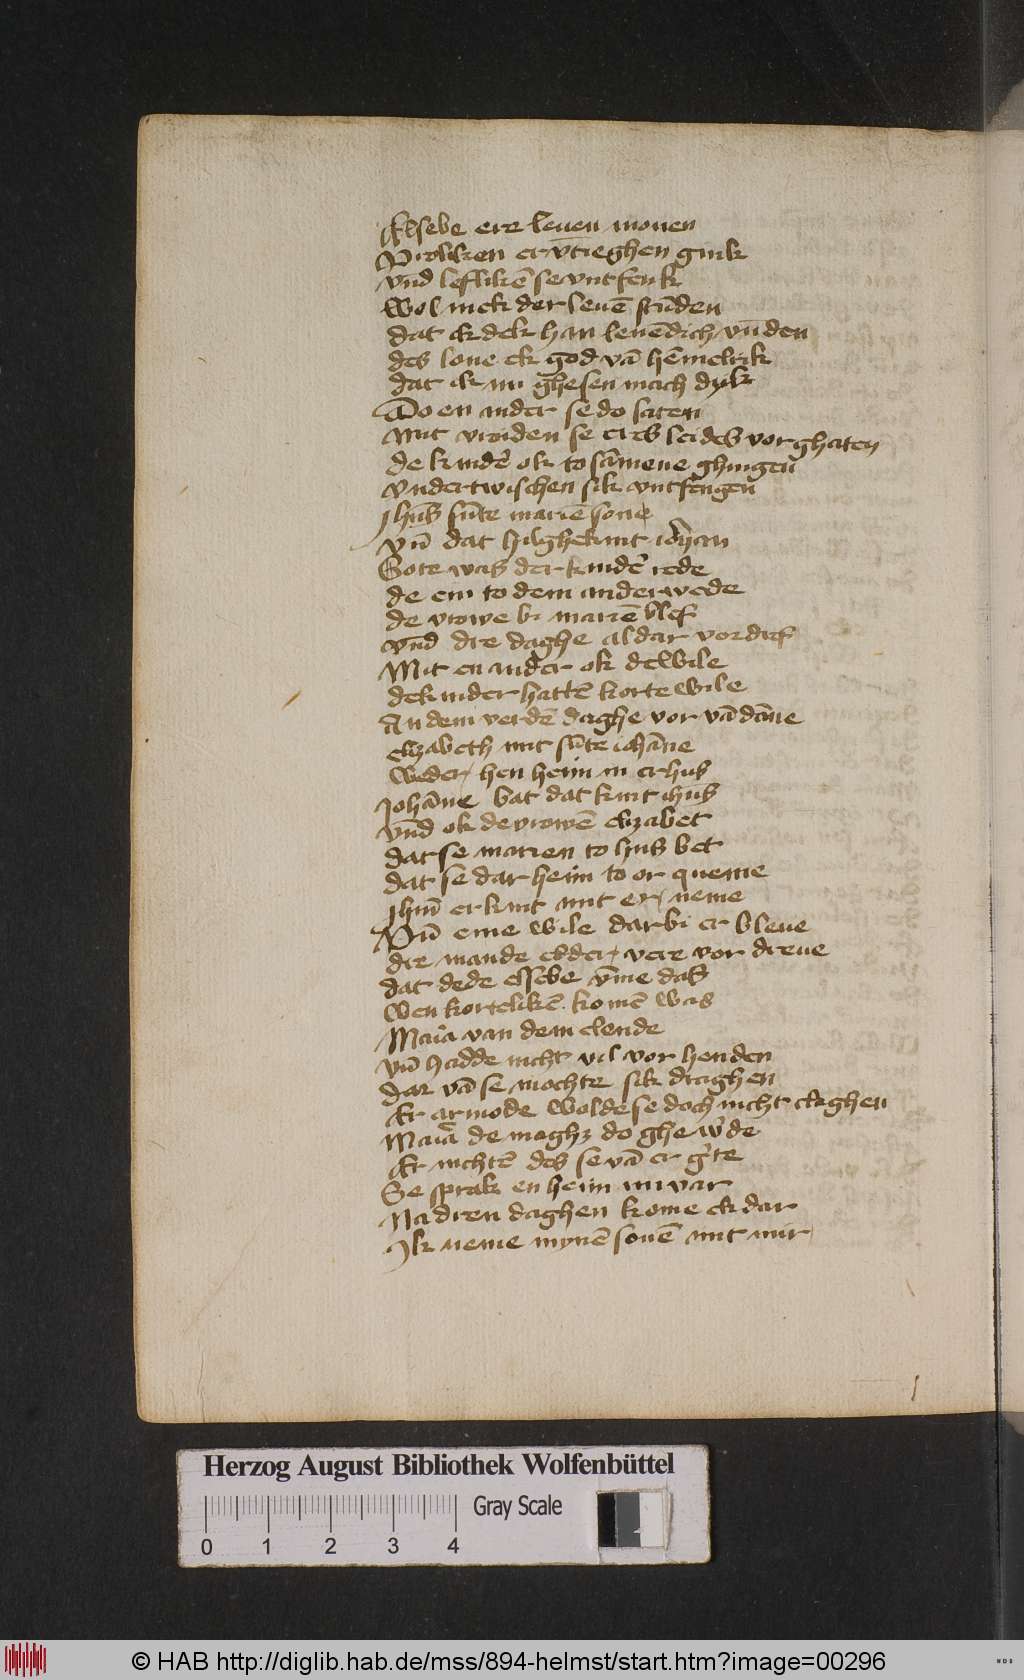 Elsebe ere leuen monen
Vroliken er vn̄tieghen gink
vnd̄ leflikē se vntfenk
Wol mek der leuē stūden
dat ek dek han leuēdich vūden
des loue ek god vā hēmelrik
dat ik nu ghesen mach dyk
To en ander se do saten
Mit vroiden se eres leides vorghaten
de kinder ok to sāmene ghingen
Vndertwischen sik vntfengen
Jhūs sūte mariē sone
Vn̄ dat hilghe kint iohan
Sote was der kinder rede
de ein to dem anderwede
de vrowe bi mariē blef
vnd̄ dre daghe aldar vordref
Mit en ander ok delwile
de kinder hattē korte wile
An dem verdē daghe vor vā dāne
elizabeth mit sūte iohāne
Weder hen heim in er hus
Johāne bat dat kint ihūs
vnd̄ ok de vrowē elizabet
dat se marien to hus bet
dat se dar heim to or queme
Jhm̄ er kint mit er neme
Vn̄ eine wile dar bi er bleue
dre mande elder vere vor dreue
dat dede elsebe v̄me das
Wen korteliken komē was
Maria van dem elende
vn̄ hadde nicht vil vor henden
Dar vā se mochte sik draghen
Er armode wolde se doch nicht claghen
Maria de maghet do ghewerde
Er nichtē des se vā er gerte
Se sprak en heim nu var
Na dren daghen kome ek dar
Ik neme mynē sonē mit mir
Herzog August Bibliothek Wolfenbüttel
Gray Scale
0 1 2 3 4
© HAB http://diglib.hab.de/mss/894-helmst/start.htm?image=00296